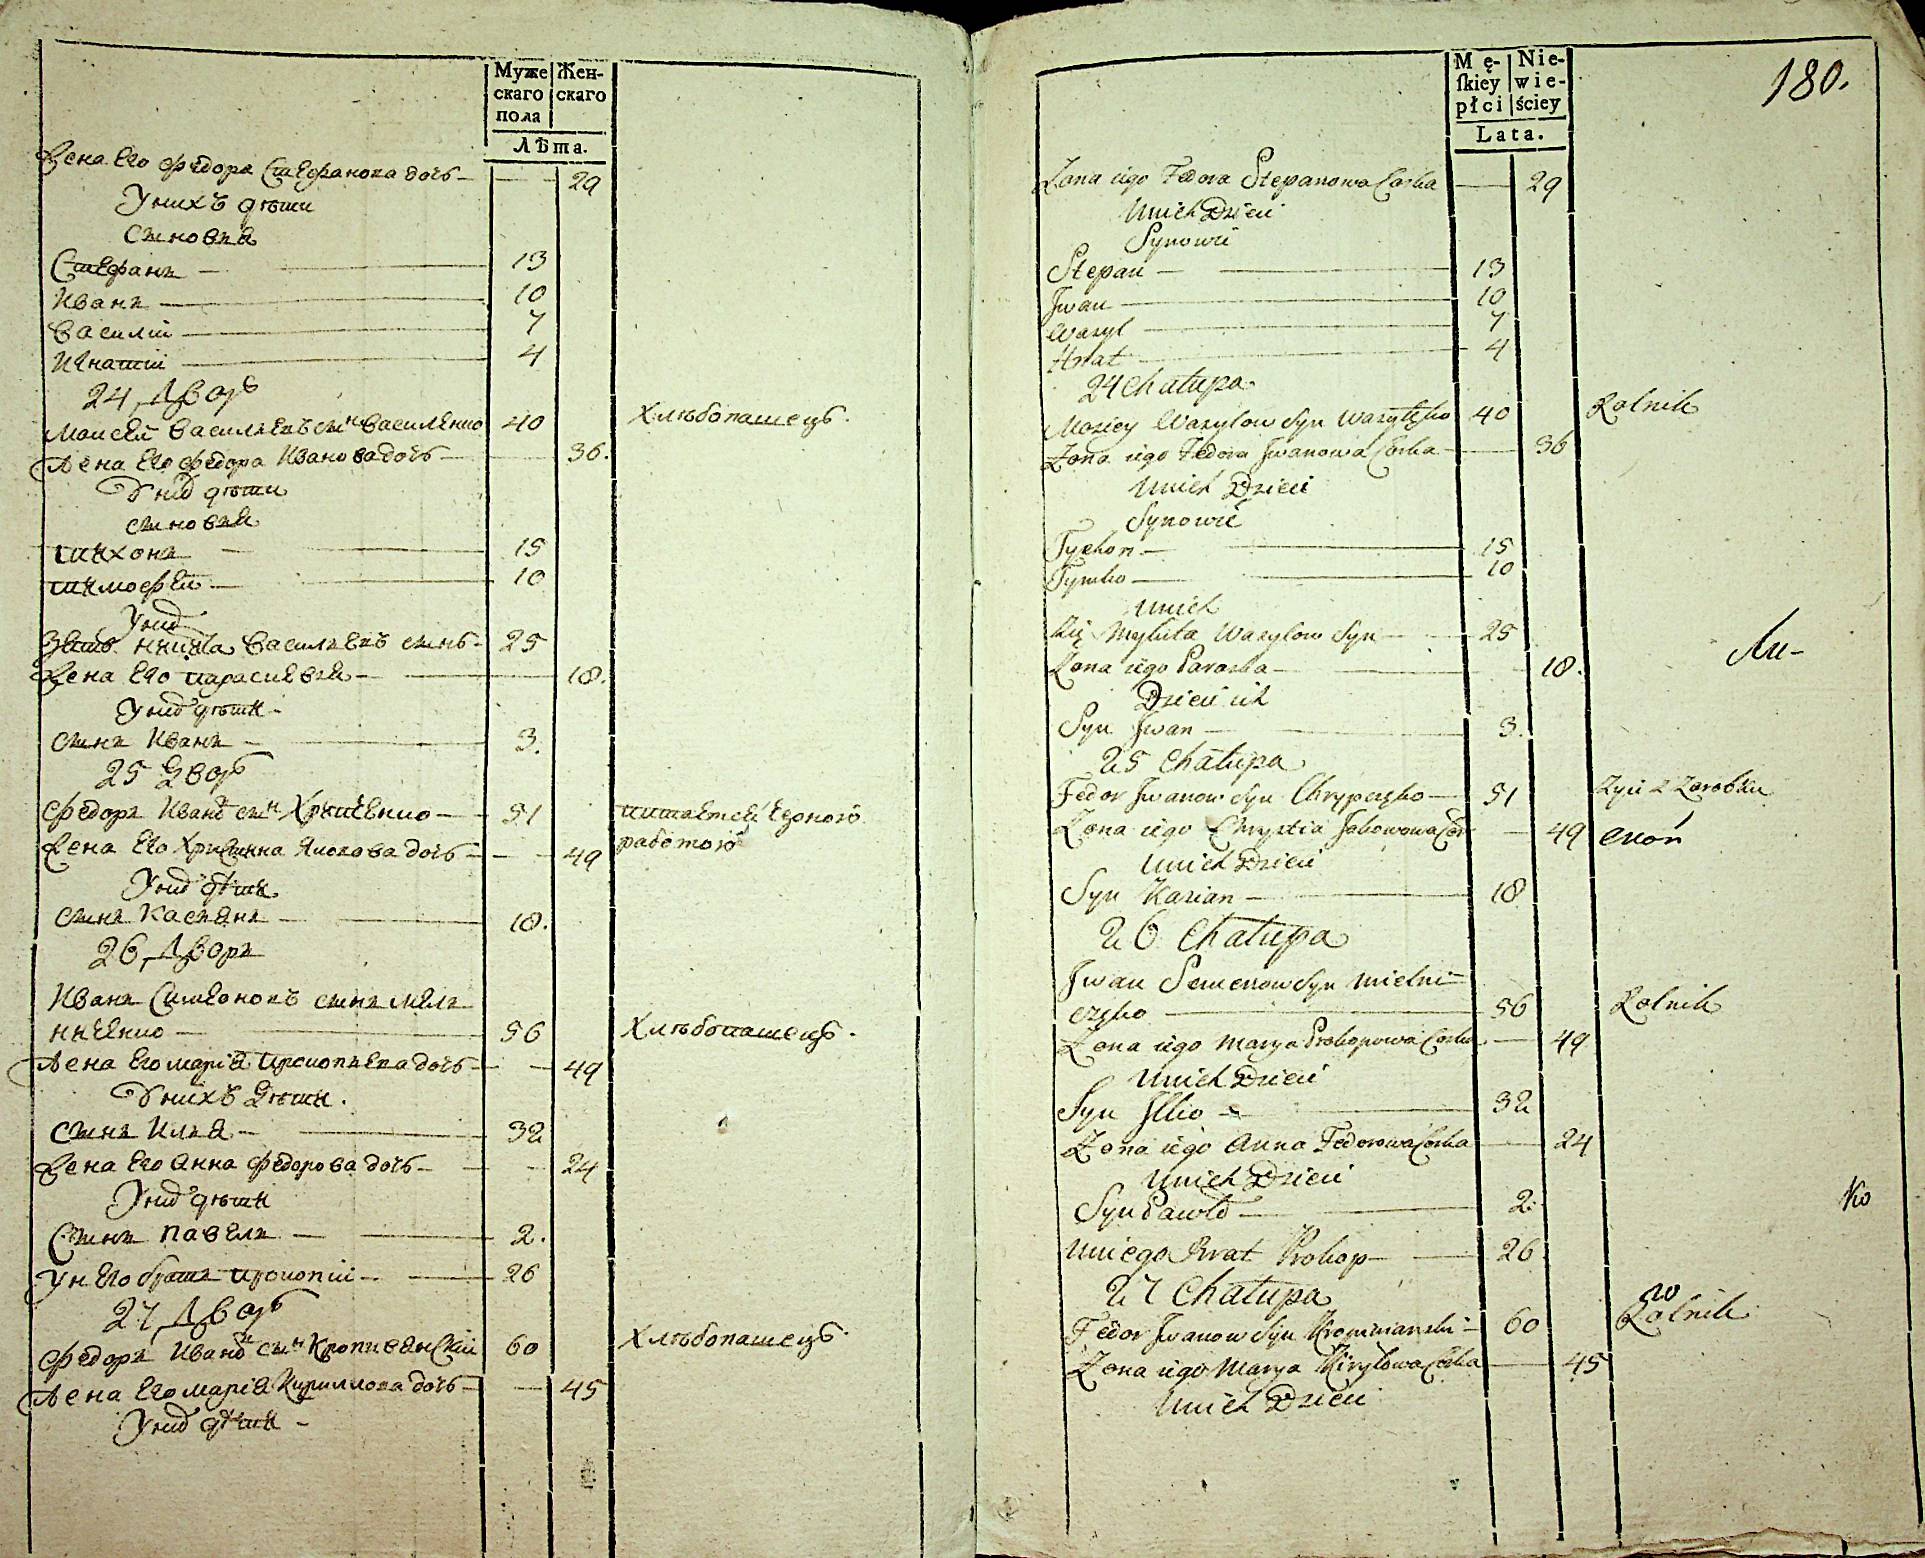 Муже
скаго
пола
Жен-
скаго
Лѣта.
Жена Его Федора Стефанова дочь — 29
У нихъ дѣти
Сыновья
Стефанъ — 13
Иванъ — 10
Василій — 7
Игнатій — 4
24 Дворъ
Моисей Васильевъ сынъ Василенко 40 Хлѣбопашецъ.
Жена Его Федора Иванова дочь — 36.
У нихъ дѣти
сыновья
Тихонъ — 15
Тимофей — 10
У нихъ
Зять Никита Васильевъ сынъ — 25
Жена Его Параскевія — 18.
У нихъ дѣти —
сынъ Иванъ — 3.
25 Дворъ
Федоръ Ивановъ сынъ Хрипченко — 51 питается
Жена Его Христина Яковова дочь — 49 работою
У нихъ дѣти
сынъ Касьянъ — 18.
26 Дворъ
Иванъ Симеоновъ сынъ Мель
ниченко — 56 Хлѣбопашецъ.
Жена Его Марія Прокопьева дочь — 49
У нихъ Дѣти.
сынъ Илья — 32
Жена Его Анна Федорова дочь — 24
У нихъ дѣти
Сынъ Павелъ — 2.
У него братъ Прокопій — 26
27 Дворъ
Федоръ Ивановъ сынъ Кропивянскій 60 Хлѣбопашецъ.
Жена Его Марія Кирилова дочь — 45
У нихъ дѣти —
Mę-
skiey
płci
Nie-
wie-
ściey
Lata.
180.
Zona iego Fedora Stepanowa Corka — 29
U nich Dzieci
Synowie
Stepan — 13
Jwan — 10
Wasyl — 7
Hnat — 4
24 Chałupa.
Mosiey Wasylow Syn Wasylęko 40 Rolnik
Zona iego Fedora Jwanowa Corka — 36
U nich Dzieci
Synowie
Tychon — 15
Tymko — 10
U nich
Mykita Wasylow Syn — 25
Zona iego Paraska — 18.
Dzieci ich
Syn Jwan — 3.
25 Chałupa
Fedor Jwanow Syn Chrypczęko — 51 Zyie z Zarobku
Zona iego Chrystia Jakowowa Cor — 49
U nich Dzieci
Syn Kasian — 18
26 Chałupa
Jwan Semenow Syn Mielni-
częko — 56 Rolnik
Zona iego Marya Prokopowa Corka — 49
U nich Dzieci
Syn Jlko — 32
Zona iego Anna Fedorowa Corka — 24
U nich Dzieci
Syn Pawło — 2.
Ko
U niego Brat Prokop — 26.
27 Chałupa
Fedor Jwanow Syn Kropiwianski — 60 Rolnik
Zona iego Marya Kiryłowa Corka — 45
U nich Dzieci